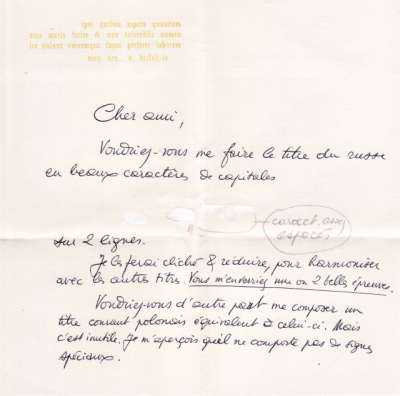 Cher ami,
Voudriez-vous me faire le titre du russe
en beaux caractères de capitales
caract. assez
espacés
sur 2 lignes.
Je les ferai clicher & réduire, pour harmoniser
avec les autres titres. Vous m'enverriez une ou 2 belles épreuves.
Voudriez-vous d'autre part me composer un
titre courant polonais équivalent à celui-ci. Mais
c'est inutile. Je m'aperçois qu'il ne comporte pas de signes
spéciaux.